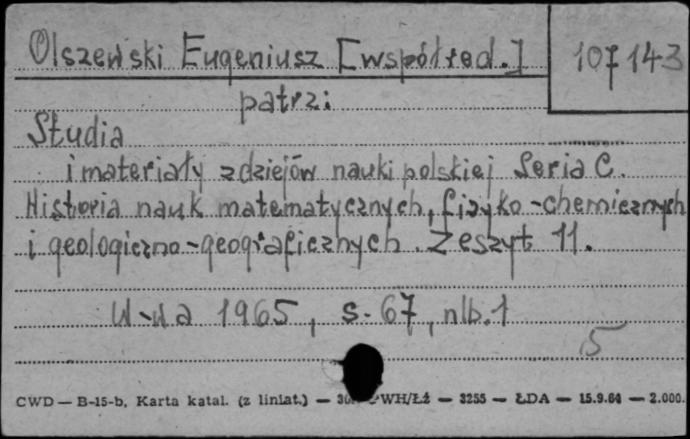 Olszewski Eugeniusz [współred.]
107143
patrz:
Studia
i materiały z dziejów nauki polskiej Seria C.
Historia nauk matematycznych, fizyko-chemicznych
i geologiczno-geograficznych. Zeszyt 11.
W-wa 1965, s. 67, nlb. 1
5
CWD — B-15-b, Karta katal. (z liniat.) — WH/Łż — 3255 — ŁDA — 15.9.64 — 2.000.